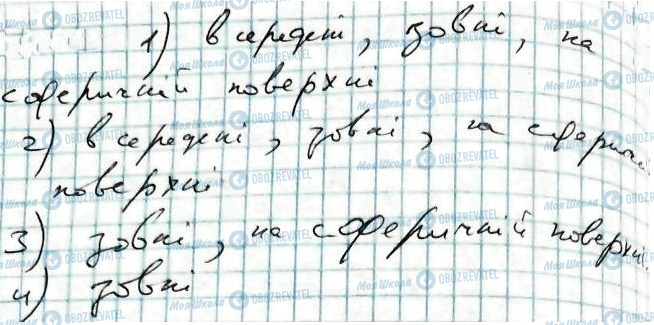 1) в середені, зовні, на
сферичній поверхні
2) в середені, зовні, на сферичн
поверхні
3) зовні, на сферичній поверхні
4) зовні